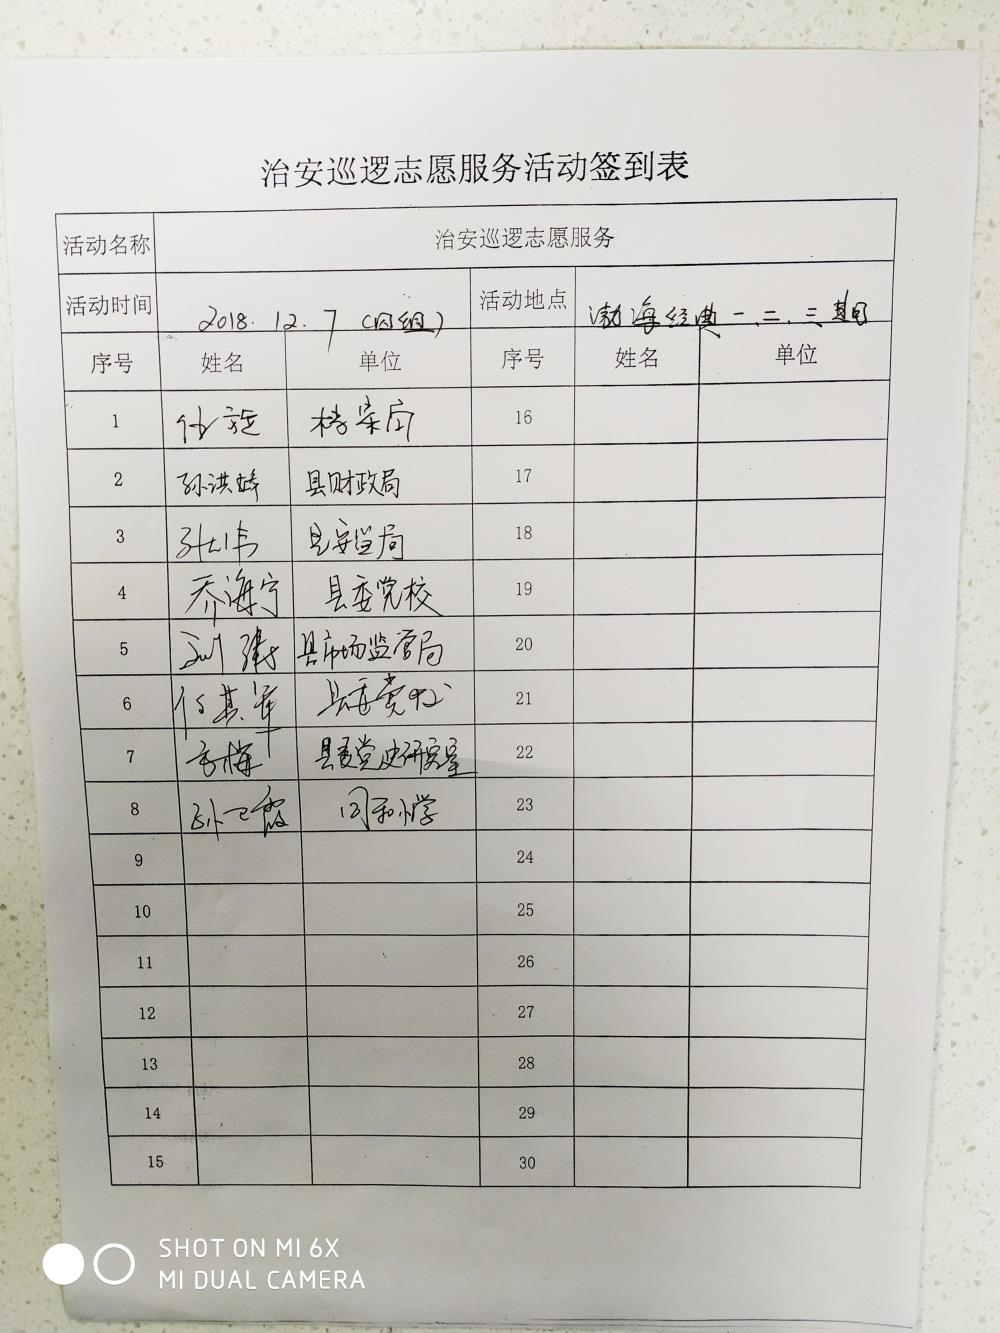 治安巡逻志愿服务活动签到表
活动名称 治安巡逻志愿服务
活动时间 2018.12.7（四组） 活动地点 渤海经典一、二、三期
序号 姓名 单位 序号 姓名 单位
1 档案局 16
2 孙洪峰 县财政局 17
3 县安监局 18
4 乔海宁 县委党校 19
5 县市场监管局 20
6 任其军 县委党校 21
7 县委党史研究室 22
8 孙卫霞 同和小学 23
9 24
10 25
11 26
12 27
13 28
14 29
15 30
SHOT ON MI 6X
MI DUAL CAMERA